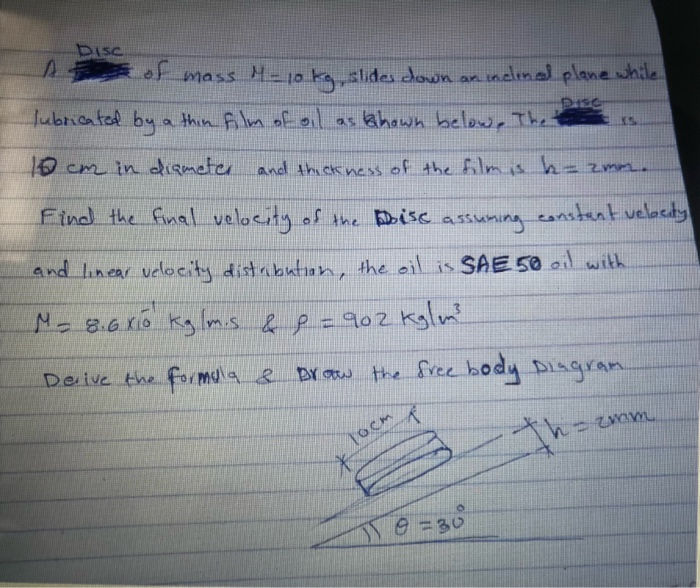 Disc
A of mass M = 10 kg, slides down an inclined plane while
lubricated by a thin film of oil as shown below. The Disc is
10 cm in diameter and thickness of the film is h = 2mm.
Find the final velocity of the Disc assuming constant velocity
and linear velocity distribution, the oil is SAE 50 oil with
M = 8.6 x 10⁻¹ kg/m.s & ρ = 902 kg/m³
Derive the formula & Draw the free body Diagram
10cm
h = 2mm
θ = 30°